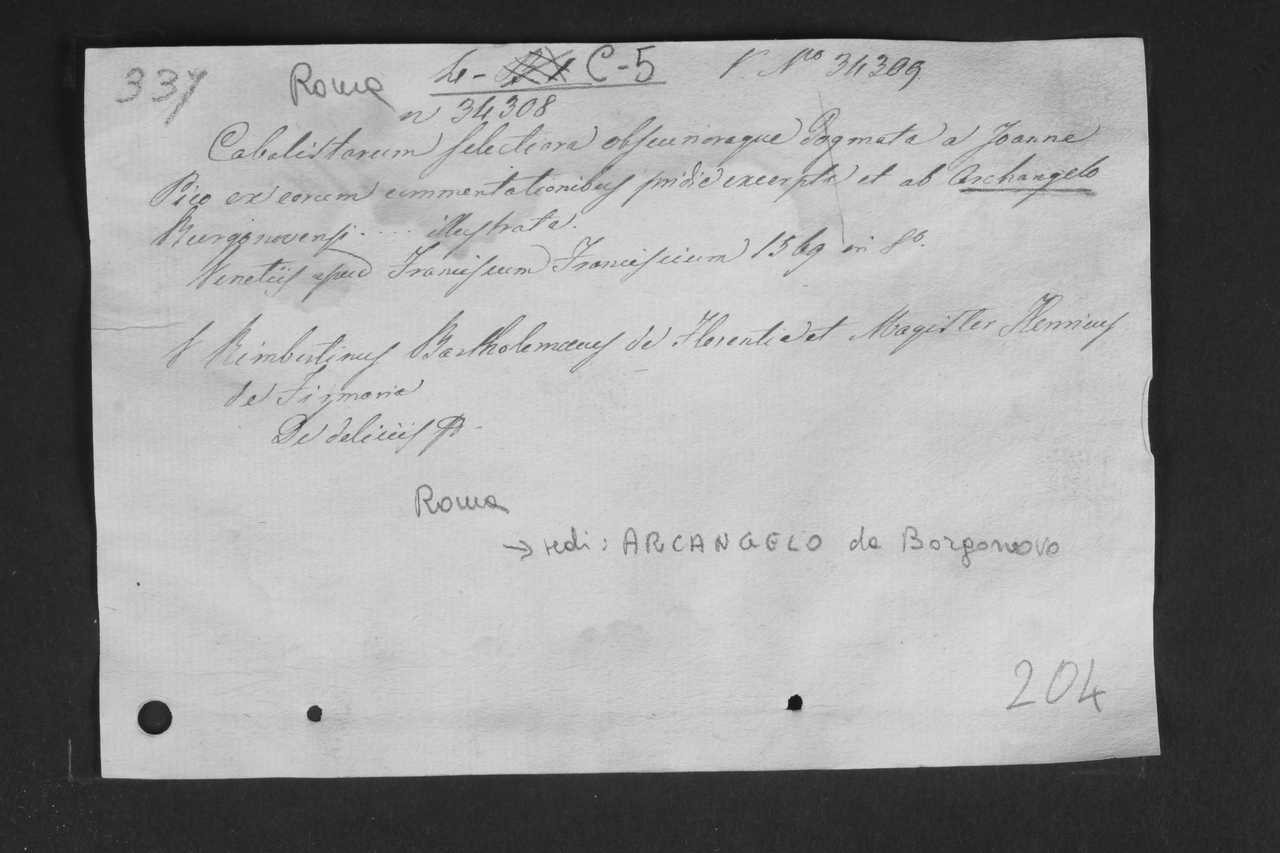 337 Roma L- C-5 V. No 34309
n 34308
Cabalistarum selectiora obscurioraque Dogmata a Joanne
Pico ex eorum commentationibus pridie excerpta et ab Archangelo
Burgonovensi .... illustrata.
Venetiis apud Franciscum Francisium 1569 in 8o.
V Rimbertinus Bartholomæus de Florentia et Magister Henricus
de Firmaria
De deliciis
Roma
→ vedi: ARCANGELO da Borgonovo
204